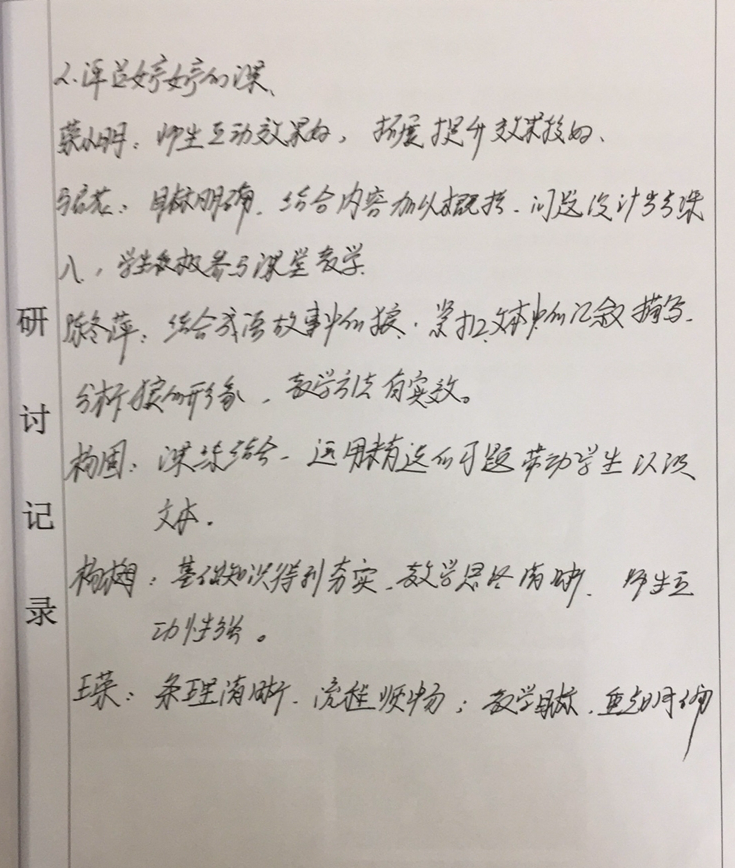 研讨记录
2.评 婷婷的课、
明：师生互动效果好，拓展提升效果较好、
目标明确，结合内容加以概括、问题设计
入，学生积极参与课堂教学。
陈冬萍：结合成语故事中的狼，紧扣文本中的记叙描写、
分析狼的形象，教学方法有实效。
杨国：课练结合、运用精选的习题带动学生
文本。
杨梅：基础知识得到夯实、教学思路清晰、师生互
动性强。
王荣：条理清晰、流程顺畅；教学目标、重点明确